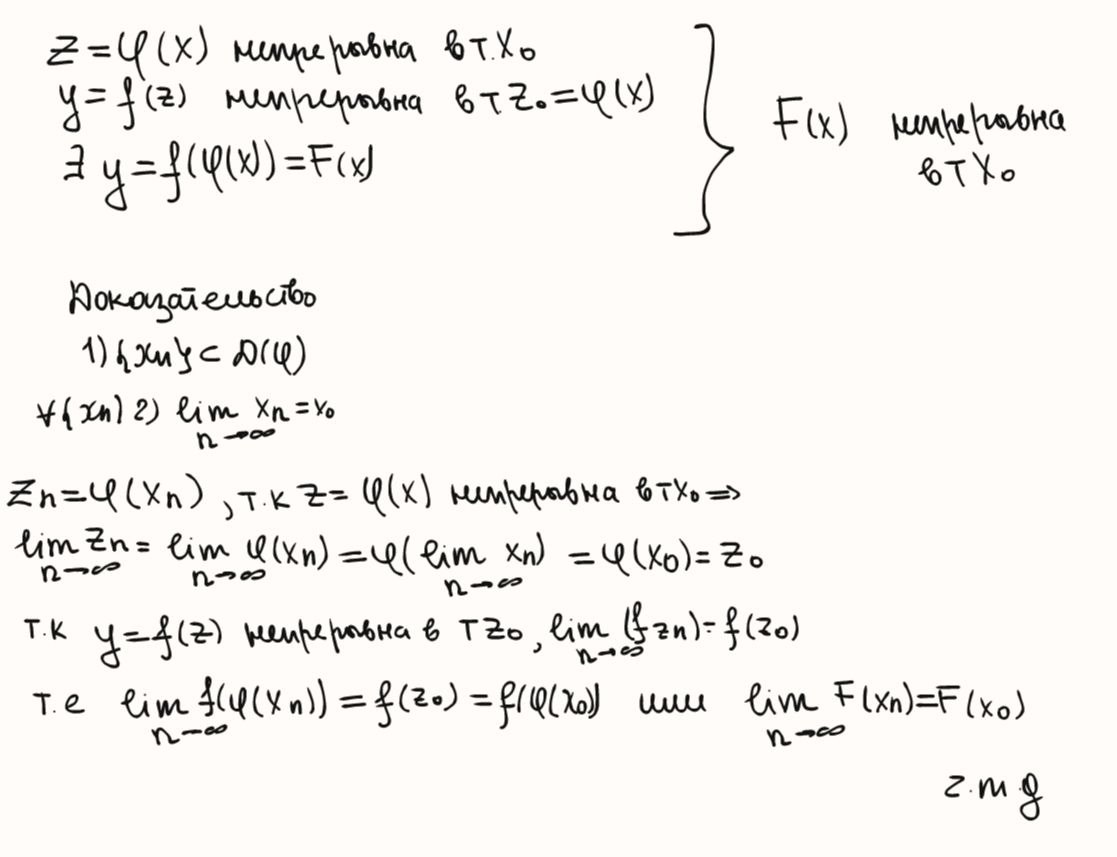 z = φ(x) непреровна в т. x₀
y = f(z) непреровна в т z₀ = φ(x)
∃ y = f(φ(x)) = F(x)
F(x) непреровна
в т x₀
Доказательство
1) {xn} ⊂ D(φ)
∀{xn} 2) lim xn = x₀
n→∞
Zn = φ(xn), т.к z = φ(x) непреровна в т x₀ ⇒
lim Zn = lim φ(xn) = φ(lim xn) = φ(x₀) = z₀
n→∞ n→∞ n→∞
т.к y = f(z) непреровна в т z₀, lim (f zn) = f(z₀)
n→∞
т.е lim f(φ(xn)) = f(z₀) = f(φ(x₀)) или lim F(xn) = F(x₀)
n→∞ n→∞
г.т д